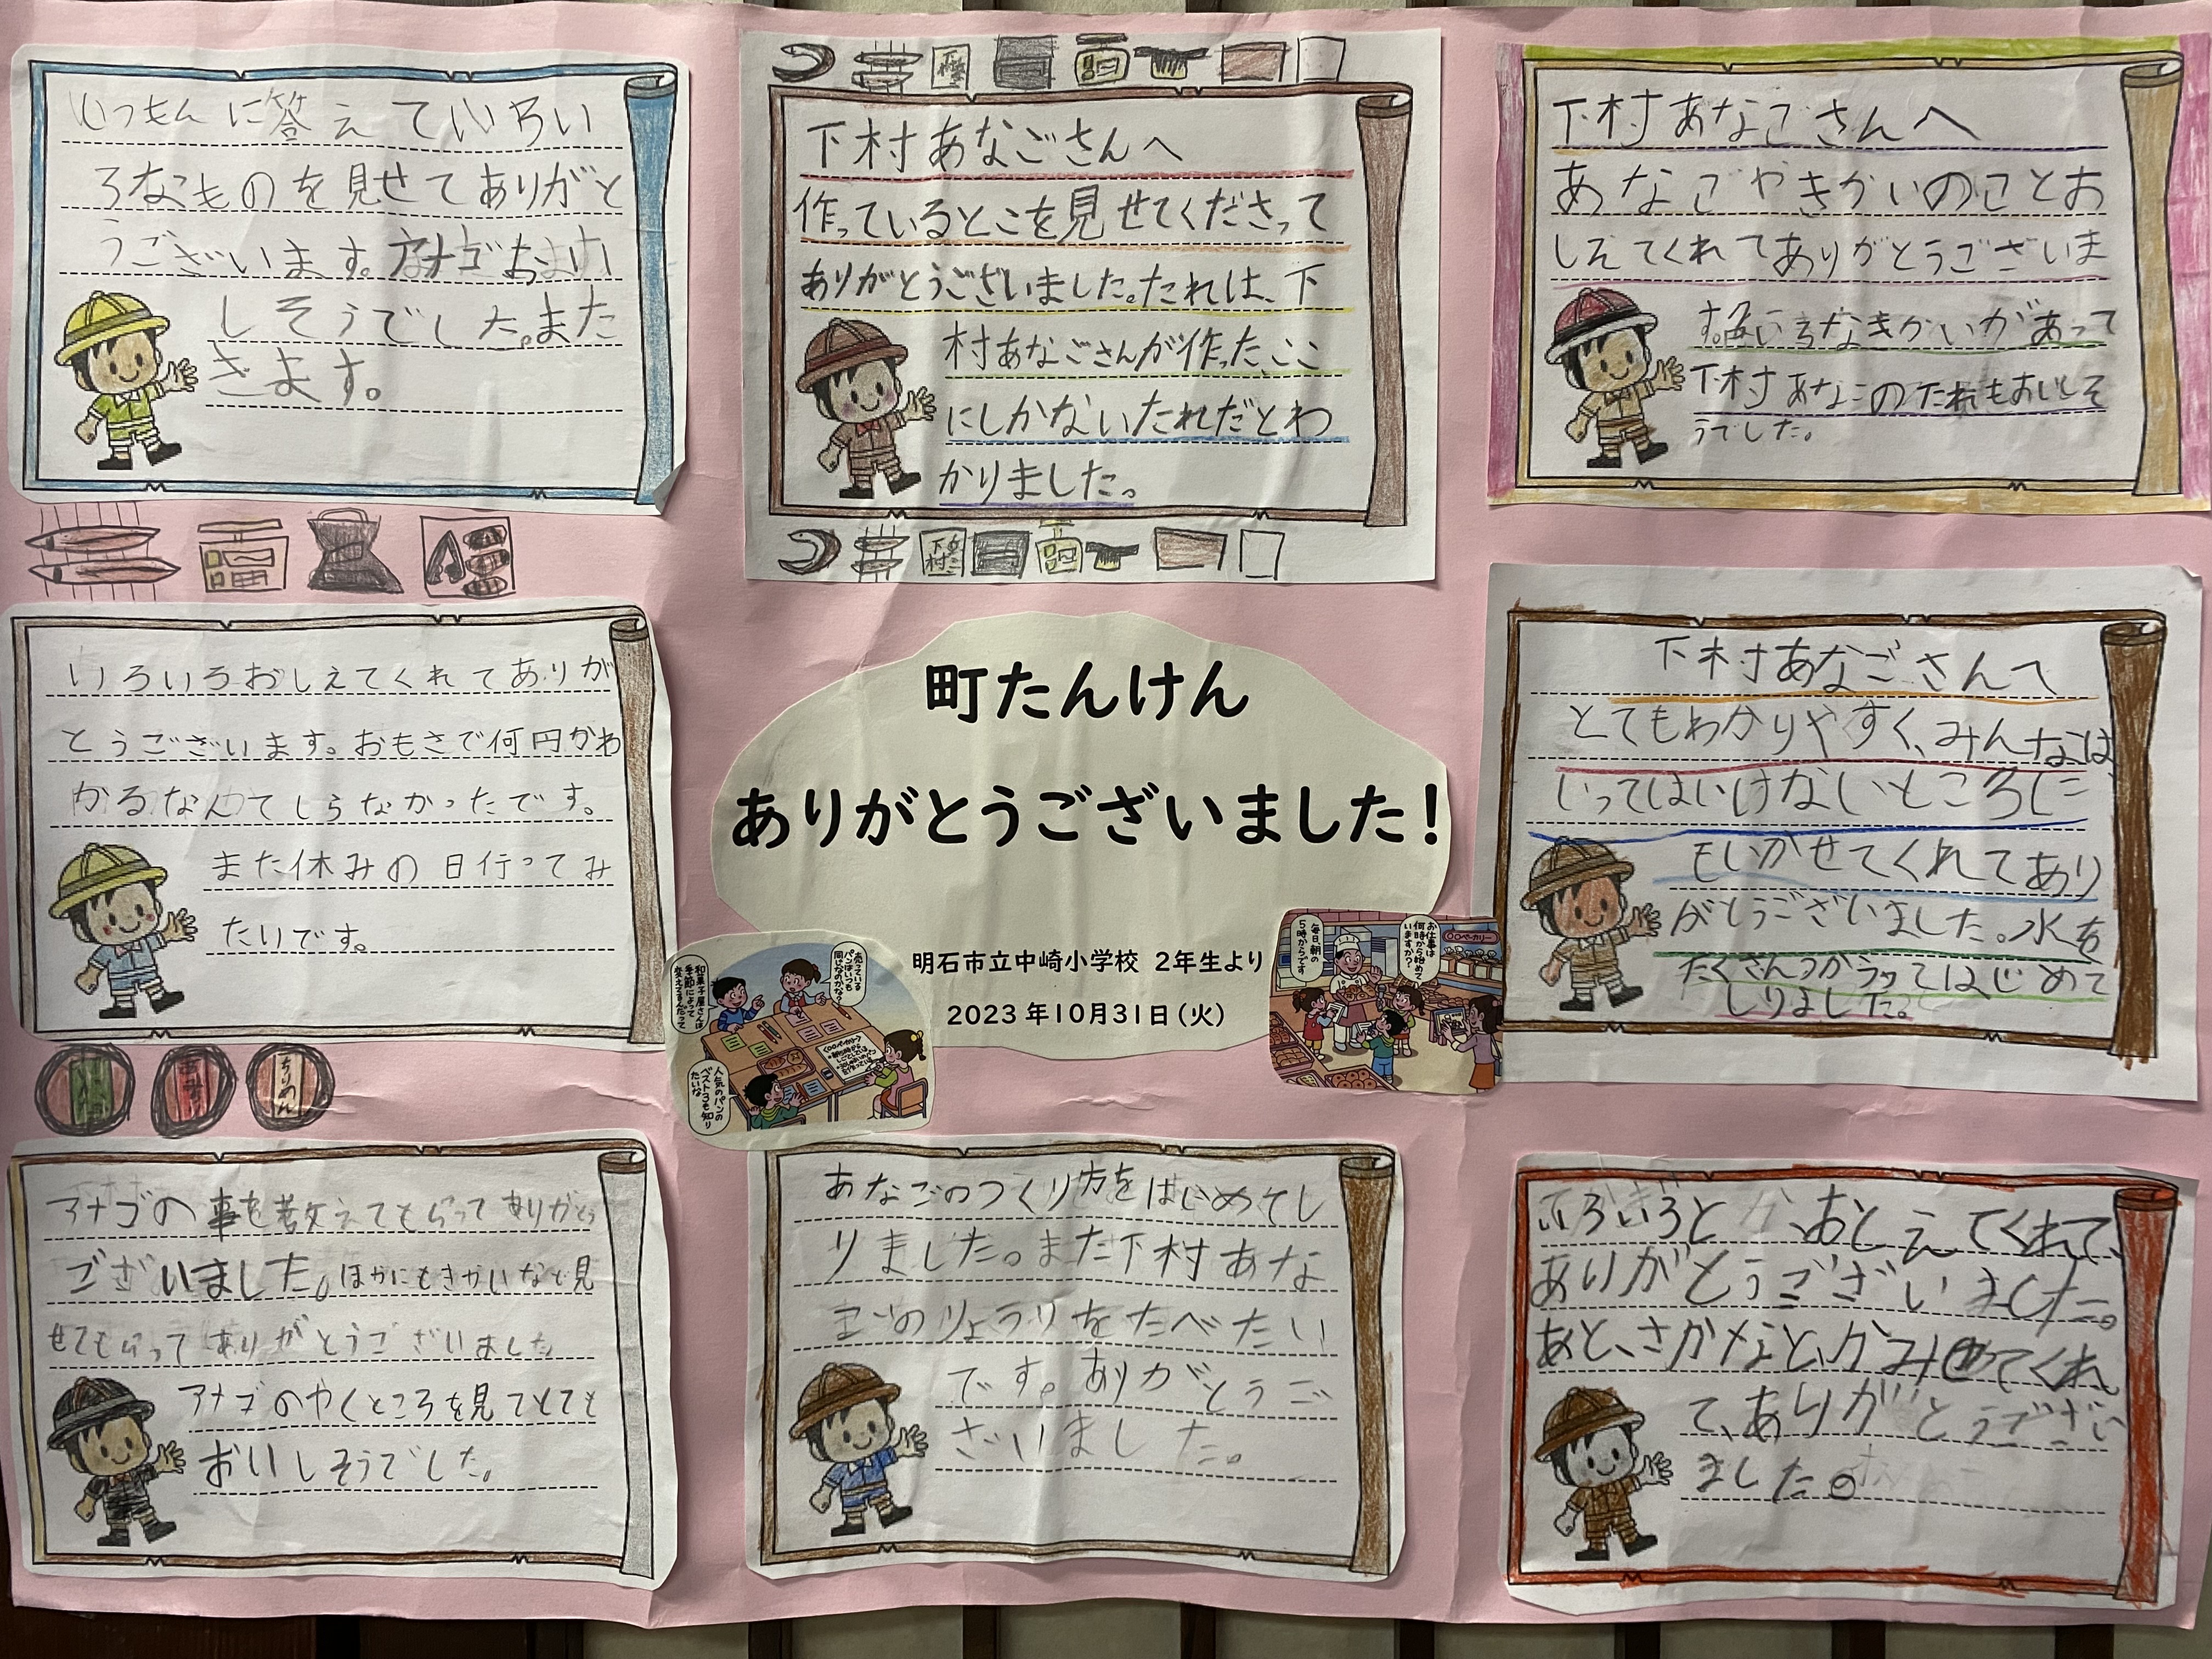 しつもんに答えていろい
ろなものを見せてありがと
うございます。アナゴおい
しそうでした。また
きます。
下村あなごさんへ
作っているとこを見せてくださって
ありがとうございました。たれは、下
村あなごさんが作った、ここ
にしかないたれだとわ
かりました。
下村あなごさんへ
あなごやきかいのことお
しえてくれてありがとうございま
す。いろなきかいがあって
下村あなごのたれもおいしそ
うでした。
下村
いろいろおしえてくれてありが
とうございます。おもさで何円かわ
かるなんてしらなかったです。
また休みの日行ってみ
たいです。
町たんけん
ありがとうございました!
明石市立中崎小学校 2年生より
2023年10月31日(火)
売っている
パンはいつも
同じなのかな?
和菓子屋さんは
季節によって
変えてるんだって
人気のパンの
ベスト3も知り
たいな
お仕事は
何時から始めて
いますか?
毎日、朝の
5時からです
○○ベーカリー
下村あなごさんへ
とてもわかりやすく、みんなは
いってはいけないところに
もいかせてくれてあり
がとうございました。水を
たくさんつかうってはじめて
しりました。
ちりめん
アナゴの事を教えてもらってありがとう
ございました。ほかにもきかいなど見
せてもらってありがとうございました
アナゴのやくところを見てとても
おいしそうでした。
あなごのつくり方をはじめてし
りました。また下村あな
ごのりょうりをたべたい
です。ありがとうご
ざいました。
いろいろと、おしえてくれて、
ありがとうございました。
あと、さかなと、かみせてくれ
て、ありがとうござい
ました。